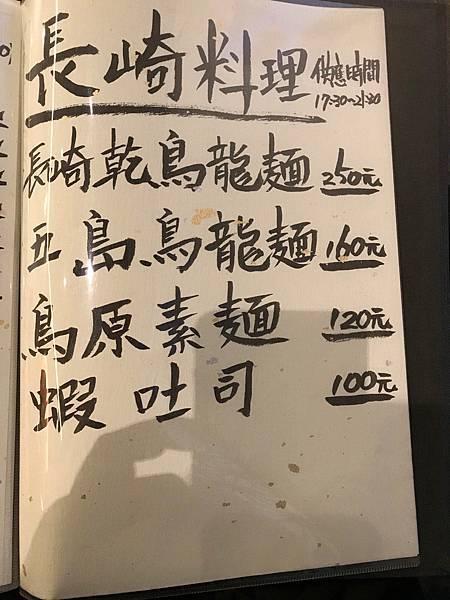 長崎料理 供應時間
17:30~21:30
長崎乾鳥龍麵 250元
五島鳥龍麵 160元
鳥原素麵 120元
蝦吐司 100元